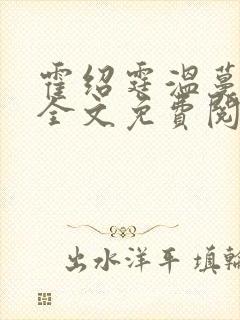 霍绍霆温蔓
全文免費閱
出水洋平 填輪